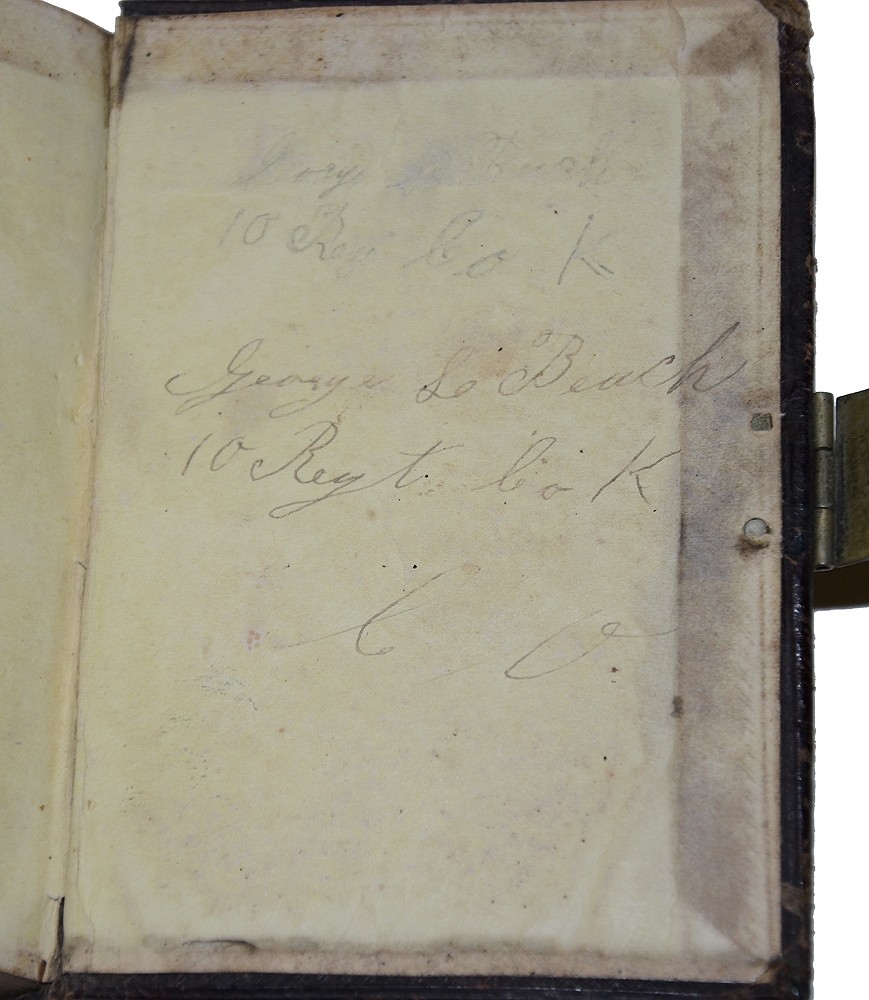 George L Beach
10 Regt Co K
George L Beach
10 Regt. Co K
C o